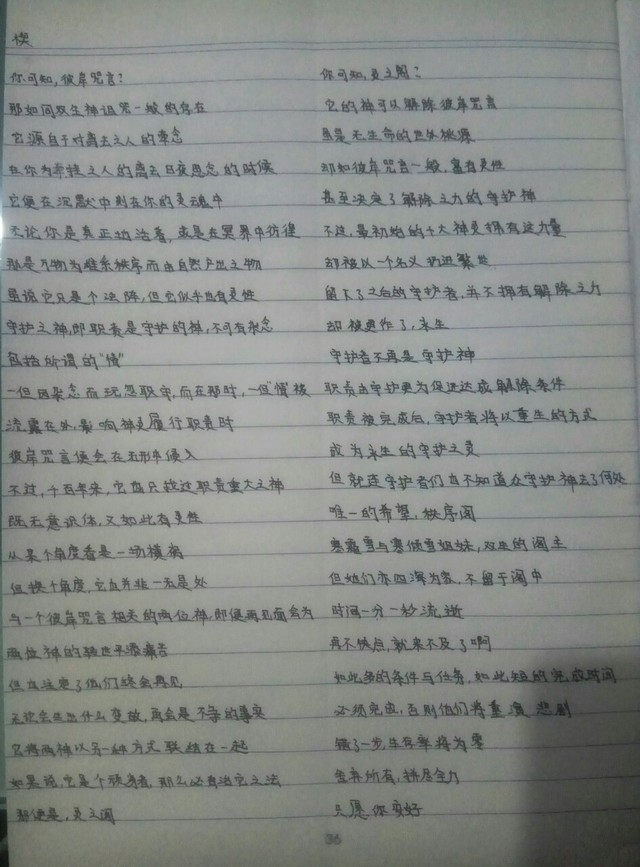 楔
你可知,彼岸咒言?
那如同双生神诅咒一般的存在
它源自于对离去之人的牵念
在你为牵挂之人的离去日夜思念的时候
它便在沉默中刻在你的灵魂中
无论你是真正地活着,或是在冥界中彷徨
那是万物为维系秩序而由自然产出之物
虽说它只是个法阵,但它似乎也有灵性
守护之神,即职责是守护的神,不可有杂念
包括所谓的"情"
一但因杂念而玩忽职守,而在那时,一但"情"被
流露在外,影响神灵履行职责时
彼岸咒言便会在无形中侵入
不过,千百年来,它也只找过职责重大之神
既无意识体,又如此有灵性
从某个角度看是一场横祸
但换个角度,它也并非一无是处
与一个彼岸咒言相关的两位神,即便再见面会为
两位神的转世平添痛苦
但也注定了他们终会再见
无论会生出什么变故,再会是不争的事实
它将两神以另一种方式联结在一起
如果说,它是个顽疾者,那么必有治它之法
那便是,灵之阁
你可知,灵之阁?
它的神可以解除彼岸咒言
虽是无生命的世外桃源
却如彼岸咒言一般,富有灵性
甚至决定了解除之力的守护神
不过,最初始的十大神灵拥有这力量
却被以一个名义扔进繁世
留下了之后的守护者,并不拥有解除之力
却被更作了,永生
守护者不再是守护神
职责由守护更为促进达成解除条件
职责被完成后,守护者将以重生的方式
成为永生的守护之灵
但就连守护者们也不知道众守护神去了何处
唯一的希望,秩序阁
寒霜雪与寒倾雪姐妹,双生的阁主
但她们亦四海为家,不留于阁中
时间一分一秒流逝
再不快点,就来不及了啊
如此多的条件与任务,如此短的完成时间
必须完成,否则他们将重演悲剧
错了一步,生存率将为零
舍弃所有,拼尽全力
只愿你安好
36